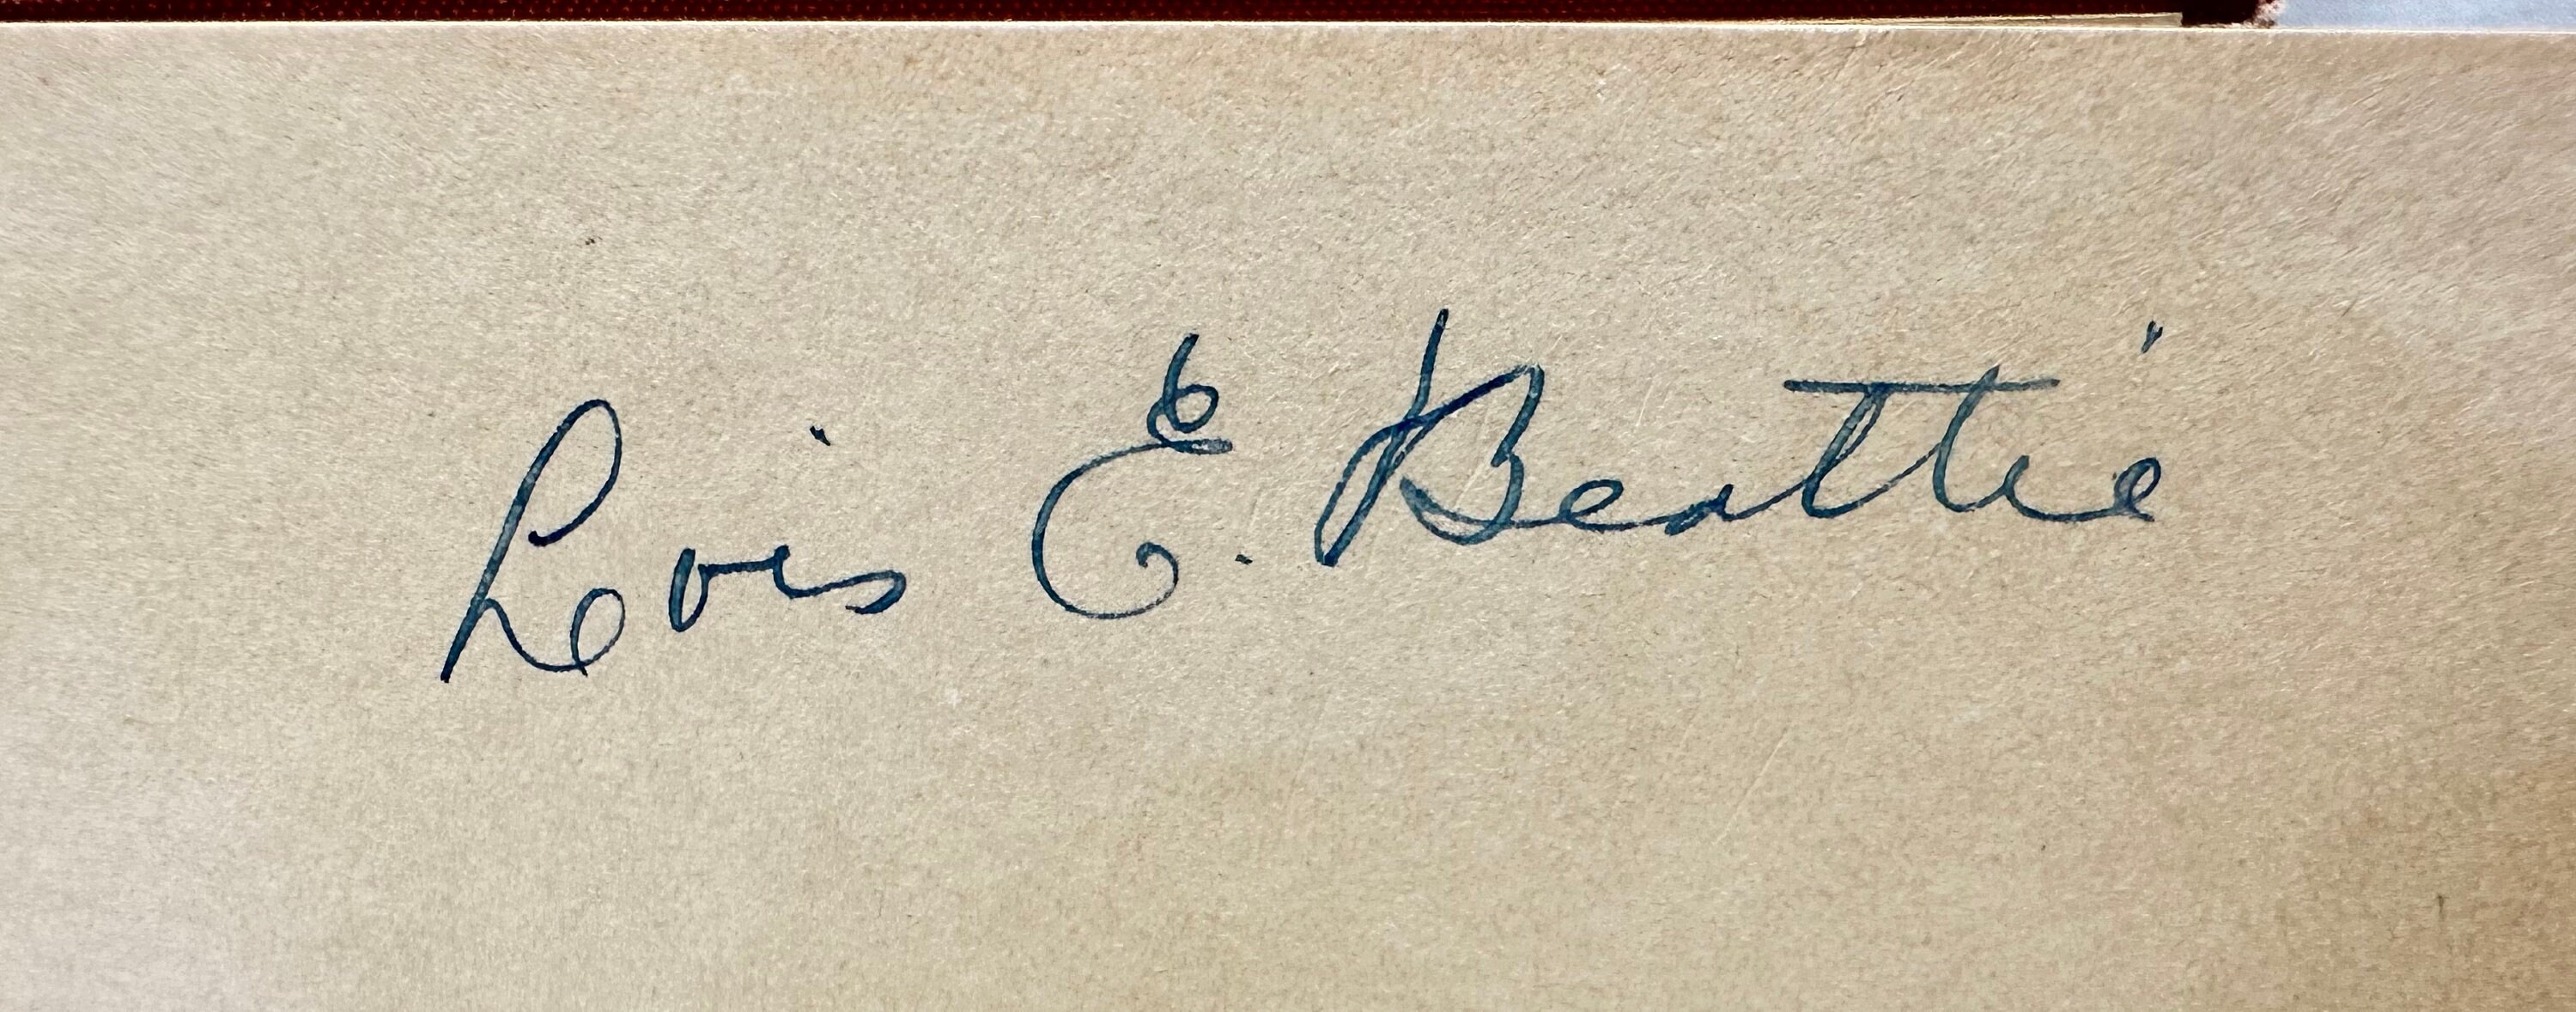 Lois E. Beattie